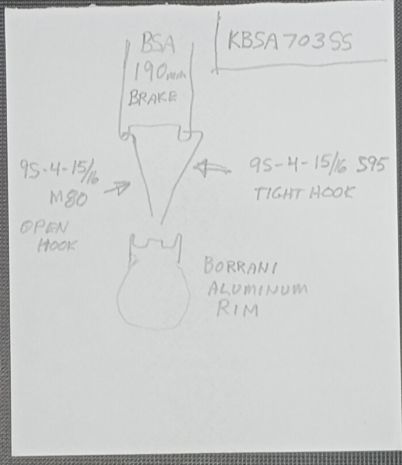 BSA
190mm
BRAKE
KBSA703SS
9S-4-15/16
M80
OPEN
HOOK
9S-4-15/16 S95
TIGHT HOOK
BORRANI
ALUMINUM
RIM